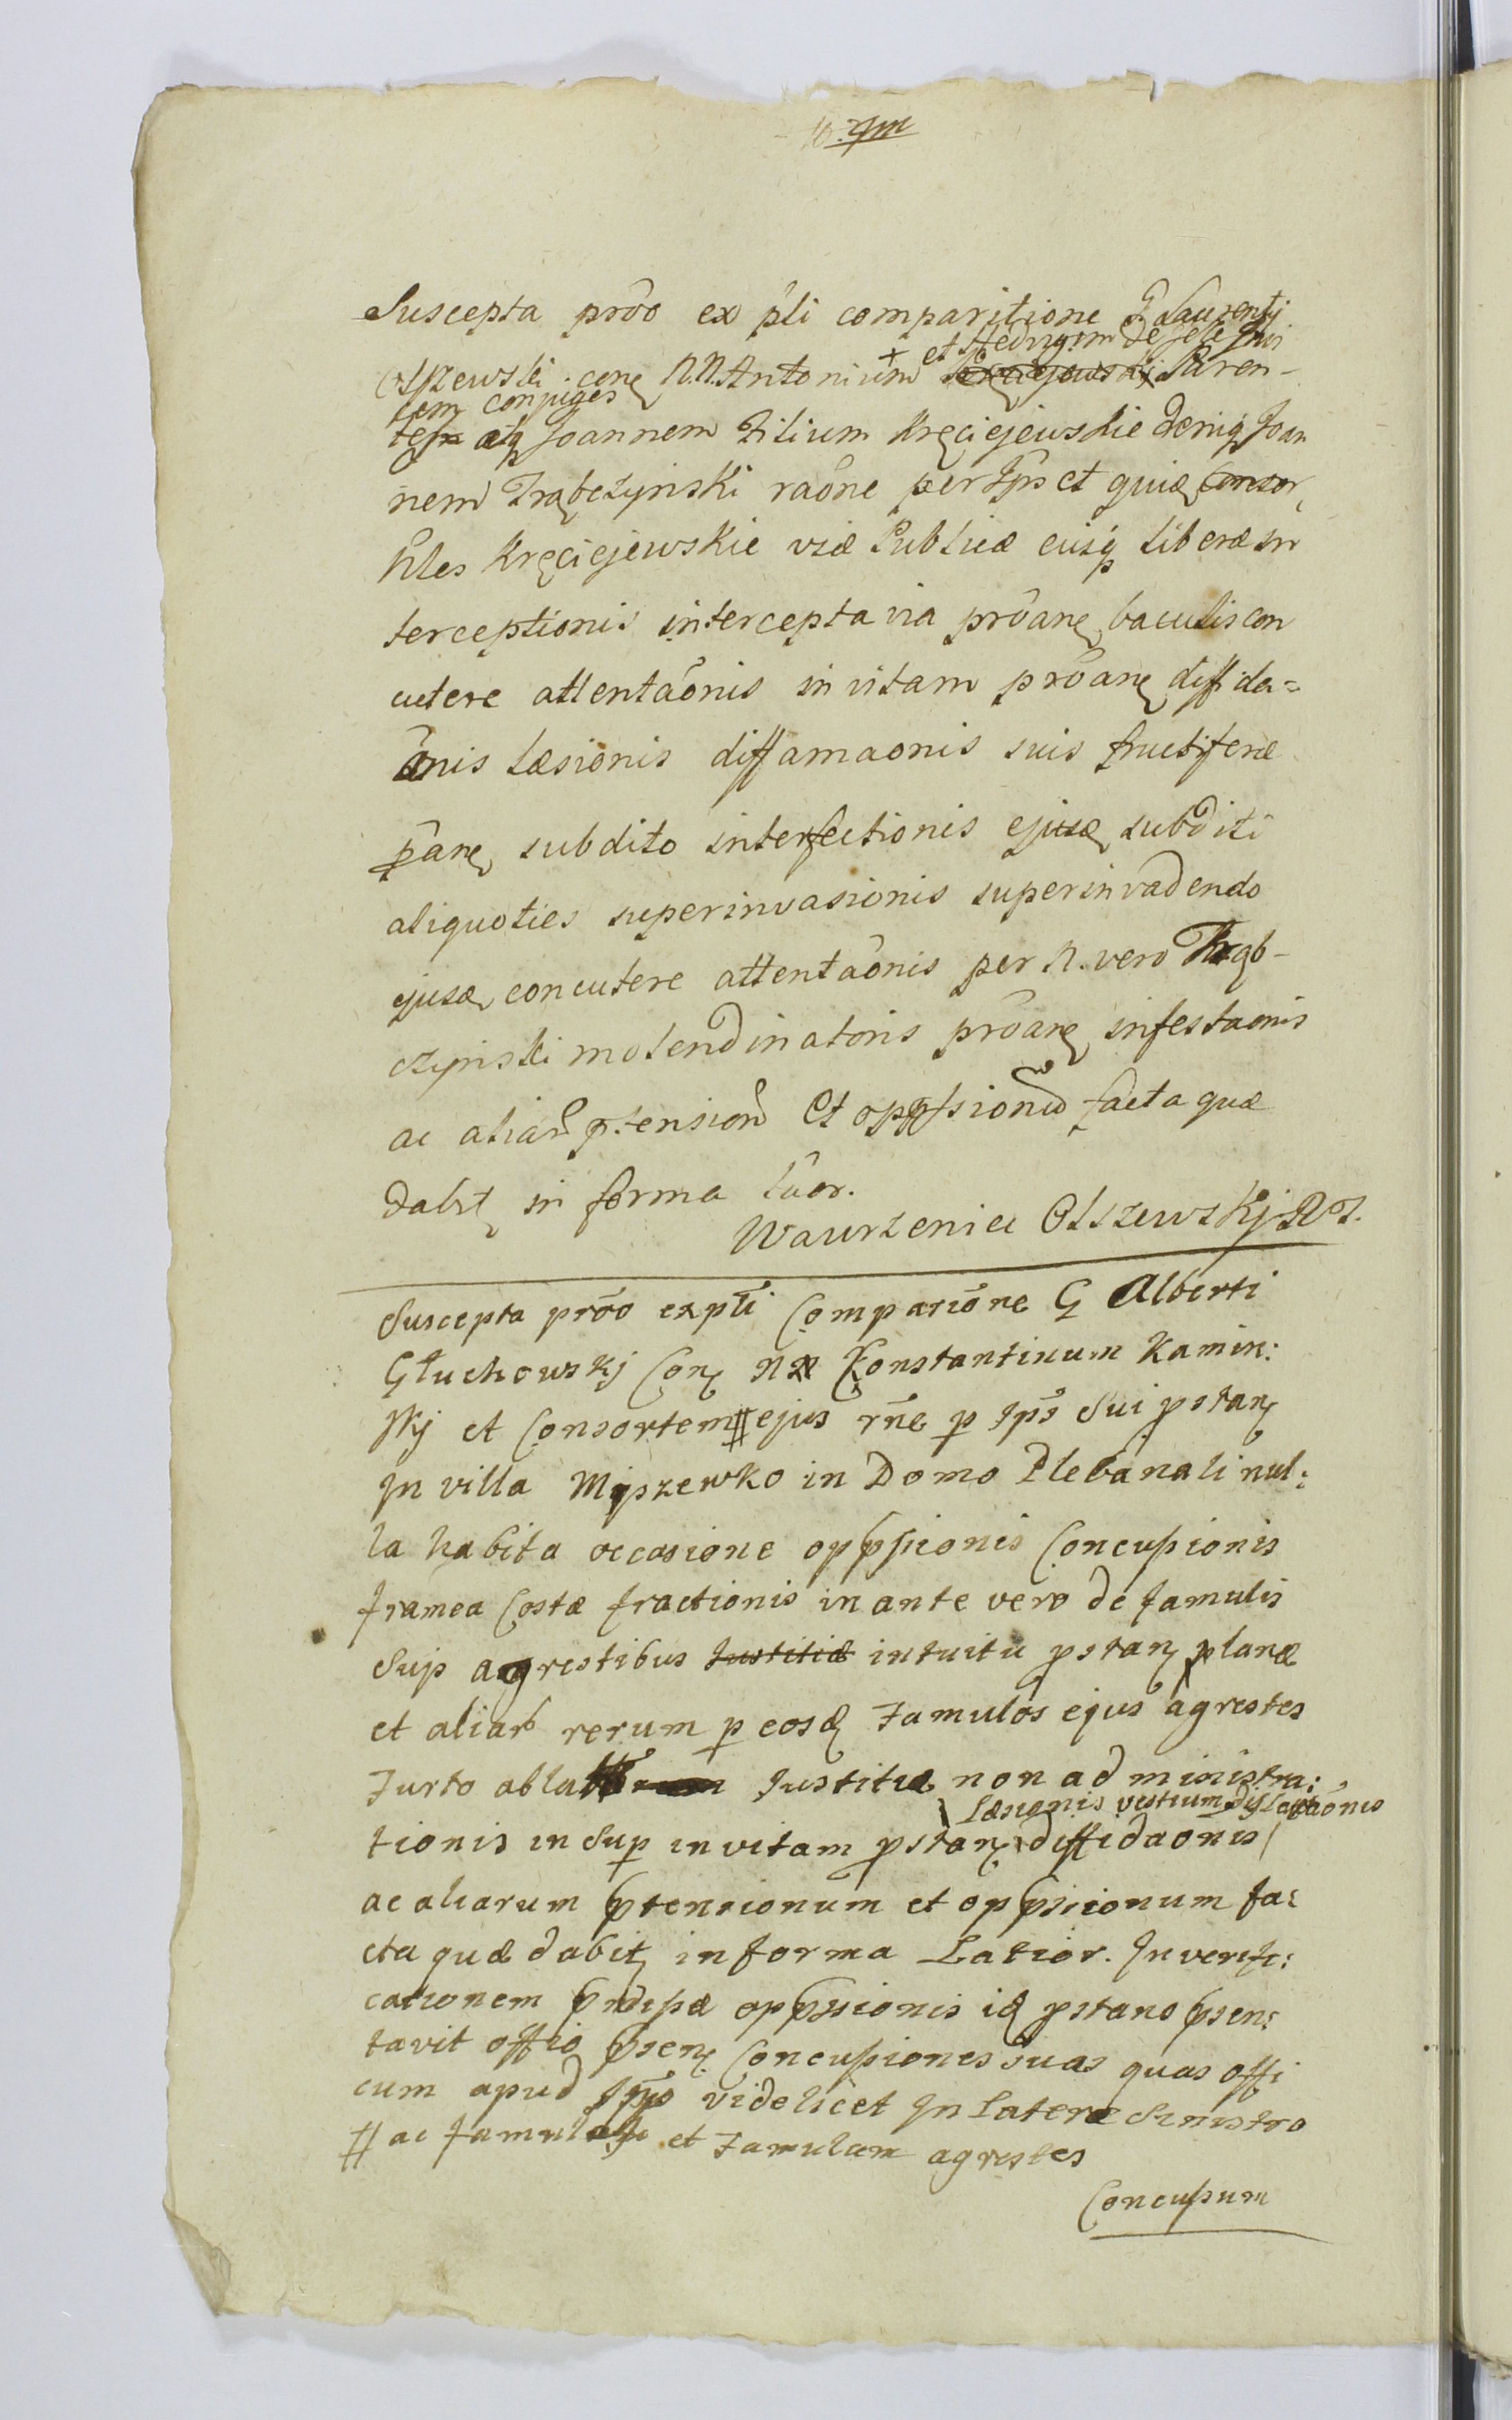 Suscepta prôo ex pli comparitione G Laurentij
et Hedvigim de
Olszewski cone N.N. Antonium + Paren-
tem conjuges
atq Joannem Filium Kręciejewskie deniq Joan
nem Trąbczyński raône per Ips et quidę
Nles Kręciejewskie viæ Publicæ eiusq liberæ in
terceptionis intercepta via prôanę baculis con
cutere attentaônis in vitam prôanę diffida=
ônis Læsionis diffamaonis suis fructiferæ
pânę subdito interfectionis ejusdę subditi
aliquoties superinvasionis superinvadendo
ejusdę concutere attentaônis per N. vero Trąb-
czyński molendinatoris prôanę infestaonis
ac aliarũ ptension et oppssionũ facta quæ
dabit in forma Lâor.
Wawrzeniec Olszewskj
Suscepta prôo ex pli Comparióne G Alberti
Głuchowskj Conę NN Konstantinum Kamin:
skj et Consortem # ejus rñe p Ips Sui pstanę
In villa Miszewko in Domo Plebanali nul:
la habita occasione oppssionis Concussionis
framea Costæ fractionis in ante vero de famulis
Sup agrestibus Justitiæ intuitu pstanę planæ
et aliarũ rerum p eosdę Famulos ejus agrestes
Furto Justitiæ non administra:
Læsionis vestium
tionis in Sup in vitam pstanę diffidaonis
ac aliarum ptensionum et oppssionum fa:
cta quæ dabitę in forma Latior. In verifi:
cationem oppssionis idę pstans psen:
tavit offio psenę Concussiones suas quas offi
cum apud Ips videlicet In Latere Sinistro
# ac et Famulam agrestes
Concussum